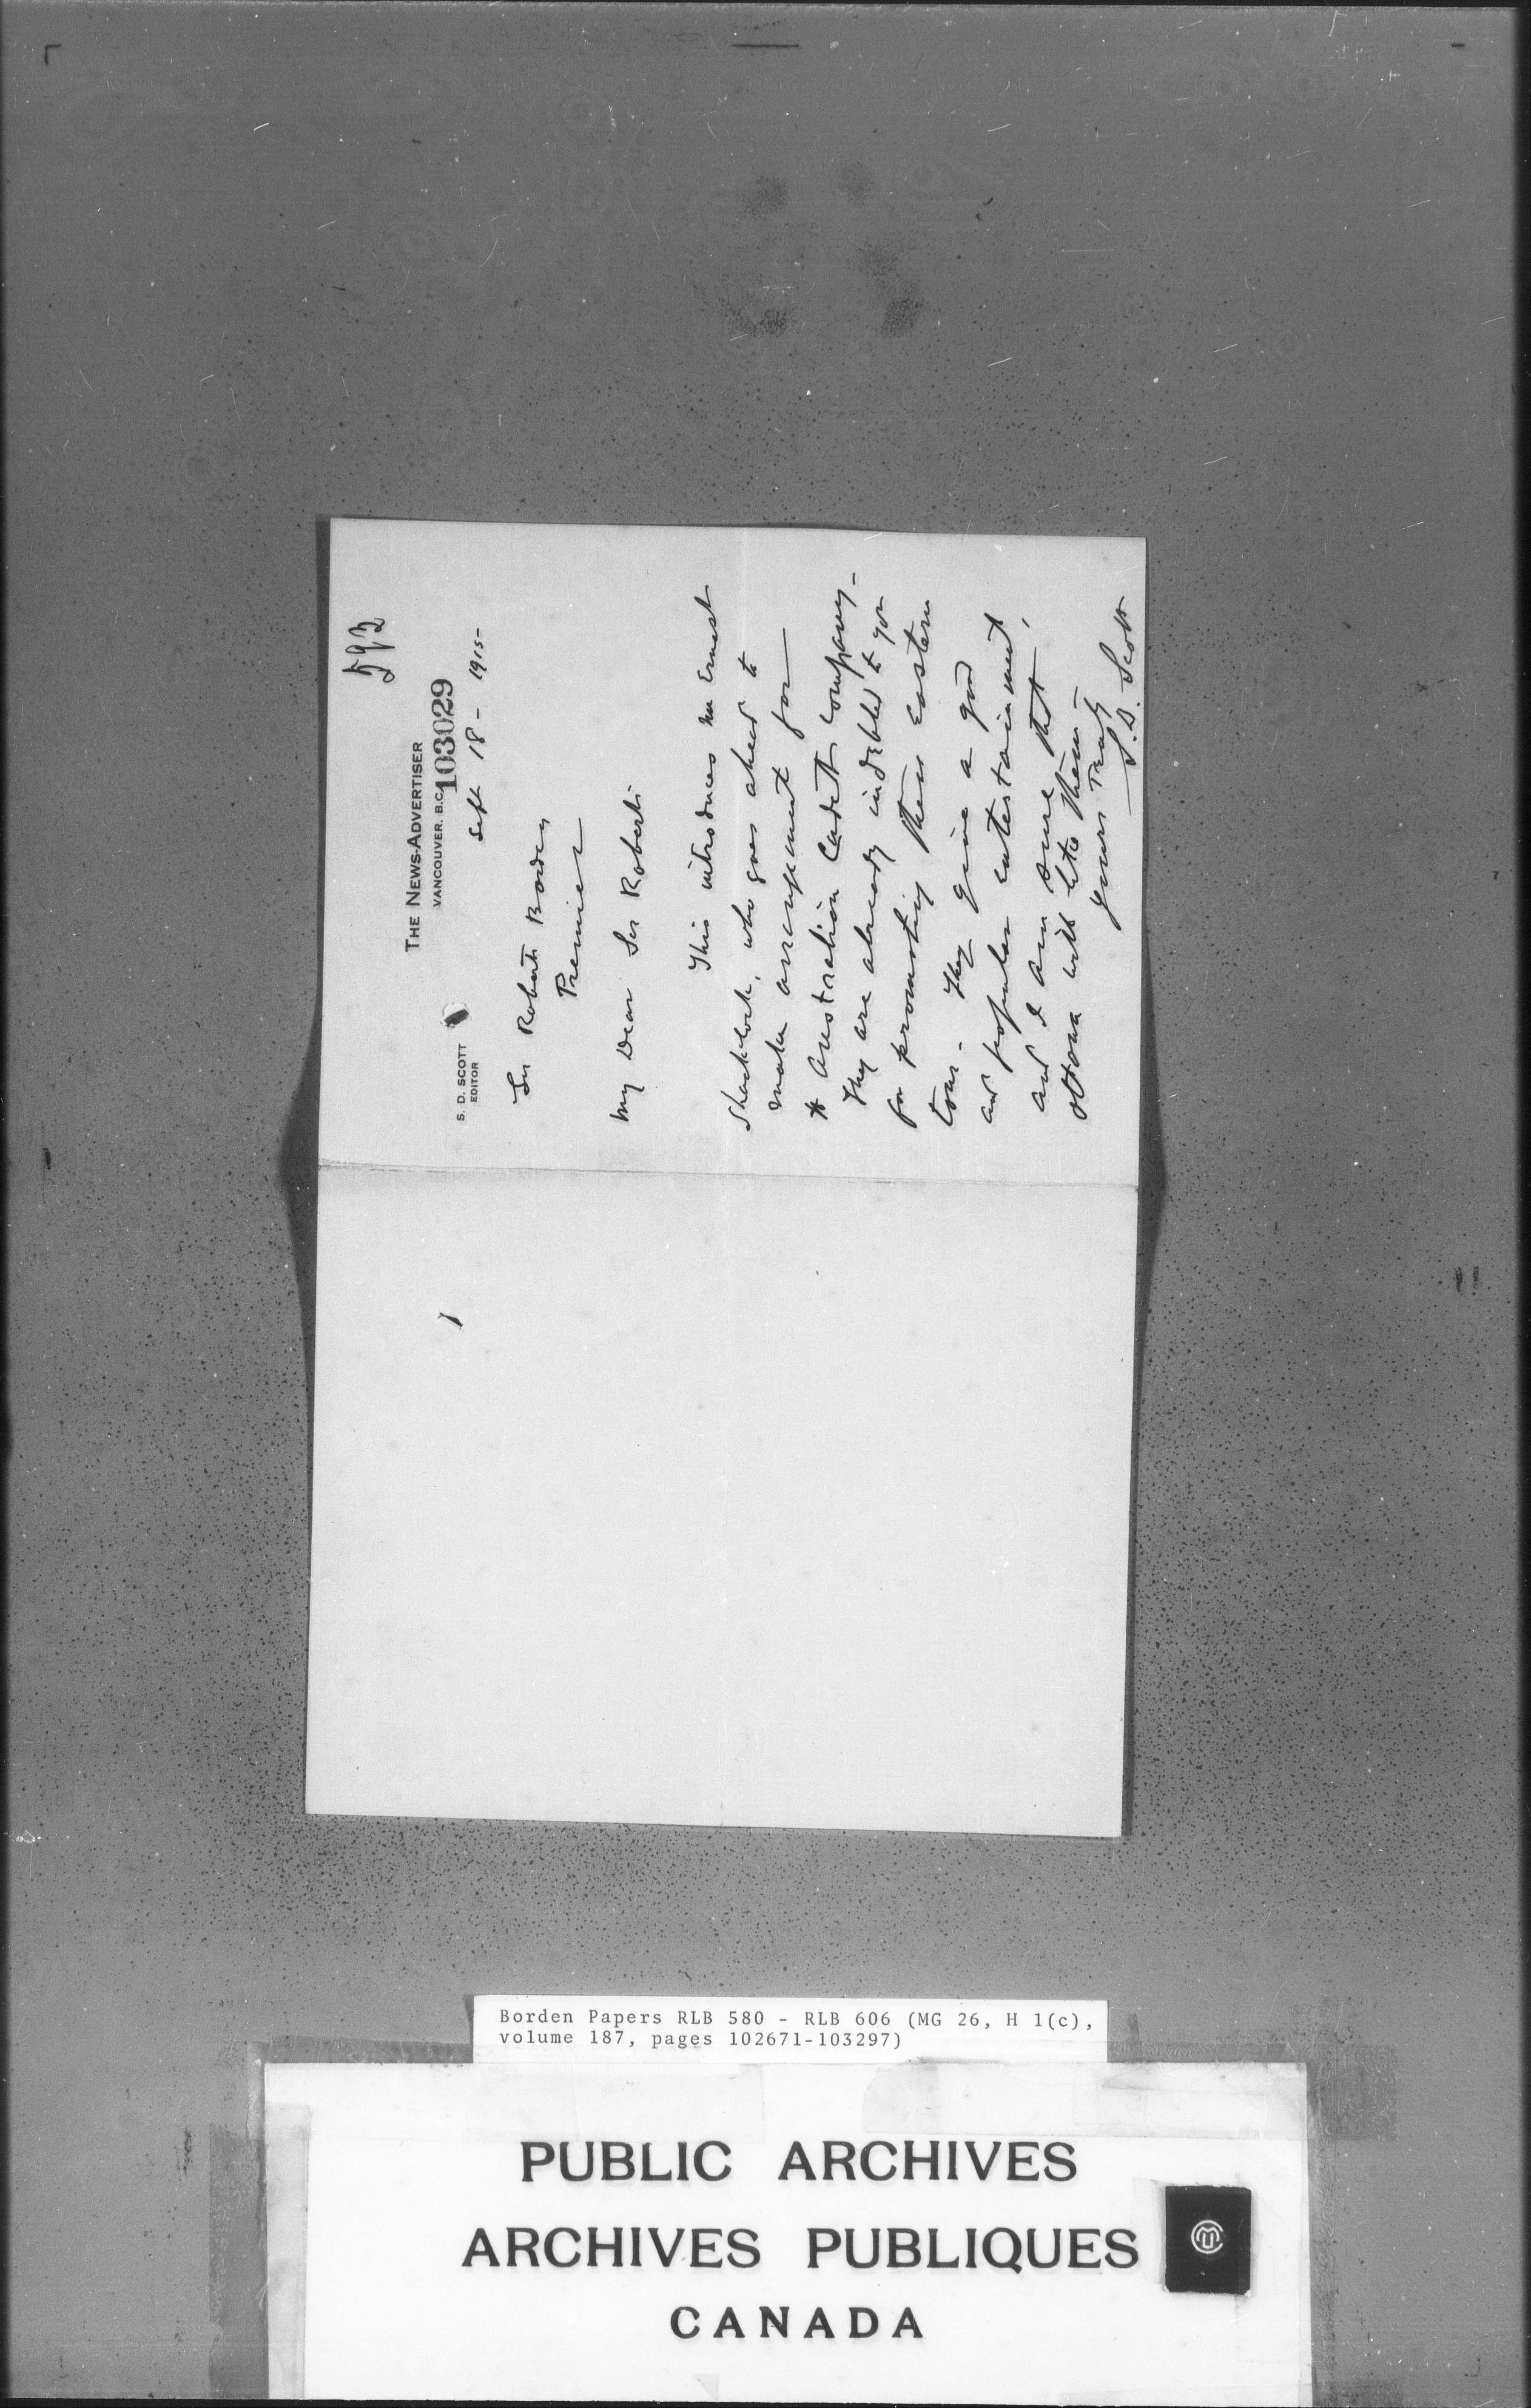 593
THE NEWS-ADVERTISER
VANCOUVER. B.C.
103029
S. D. SCOTT
EDITOR
Sept 18 - 1915-
Sir Robert Borden
Premier
My Dear Sir Robert:
This introduces Mr Ernest
Shacklock, who goes ahead to
make arrangement for
the Australian Cadett Company-
They are already indebted to you
for promoting their Eastern
tour - They give a good
and popular entertainment,
and I am sure that
Ottawa will like them -
yours Truly
S.D. Scott
Borden Papers RLB 580 - RLB 606 (MG 26, H 1(c),
volume 187, pages 102671-103297)
PUBLIC ARCHIVES
ARCHIVES PUBLIQUES
CANADA